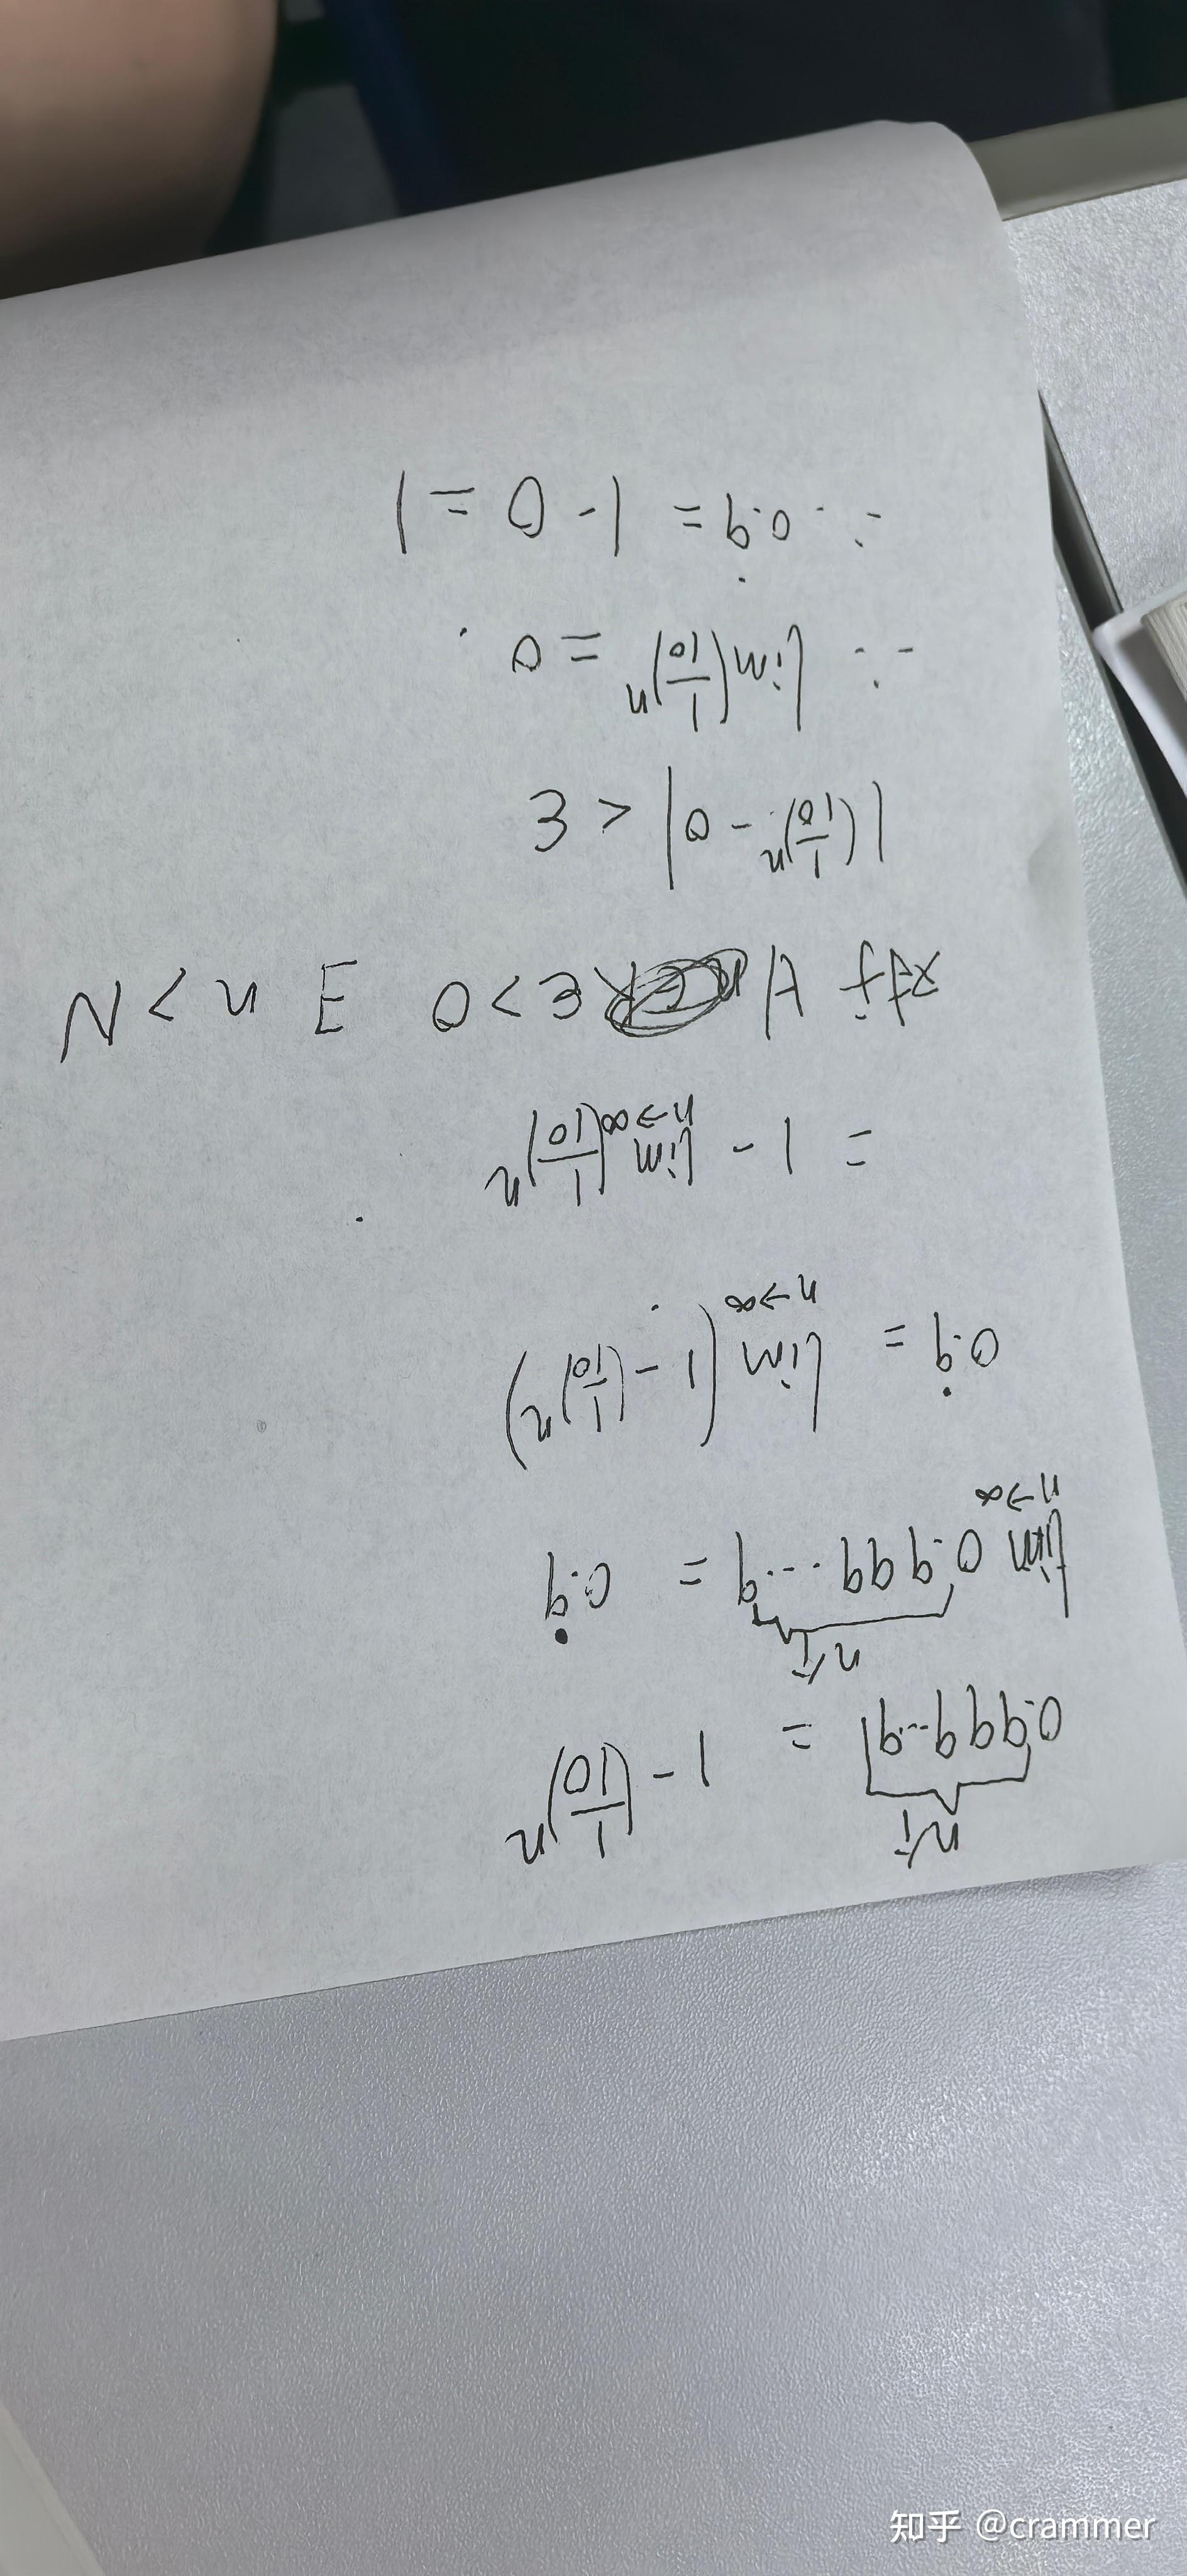 n个
0.999...9 = 1 - (1/10)ⁿ
n个
lim n→∞ 0.999...9 = 0.9̇
0.9̇ = lim n→∞ (1 - (1/10)ⁿ)
= 1 - lim n→∞ (1/10)ⁿ
对于 ∀ ε > 0 ∃ n > N
|(1/10)ⁿ - 0| < ε
∴ lim (1/10)ⁿ = 0
∴ 0.9̇ = 1 - 0 = 1
知乎 @crammer